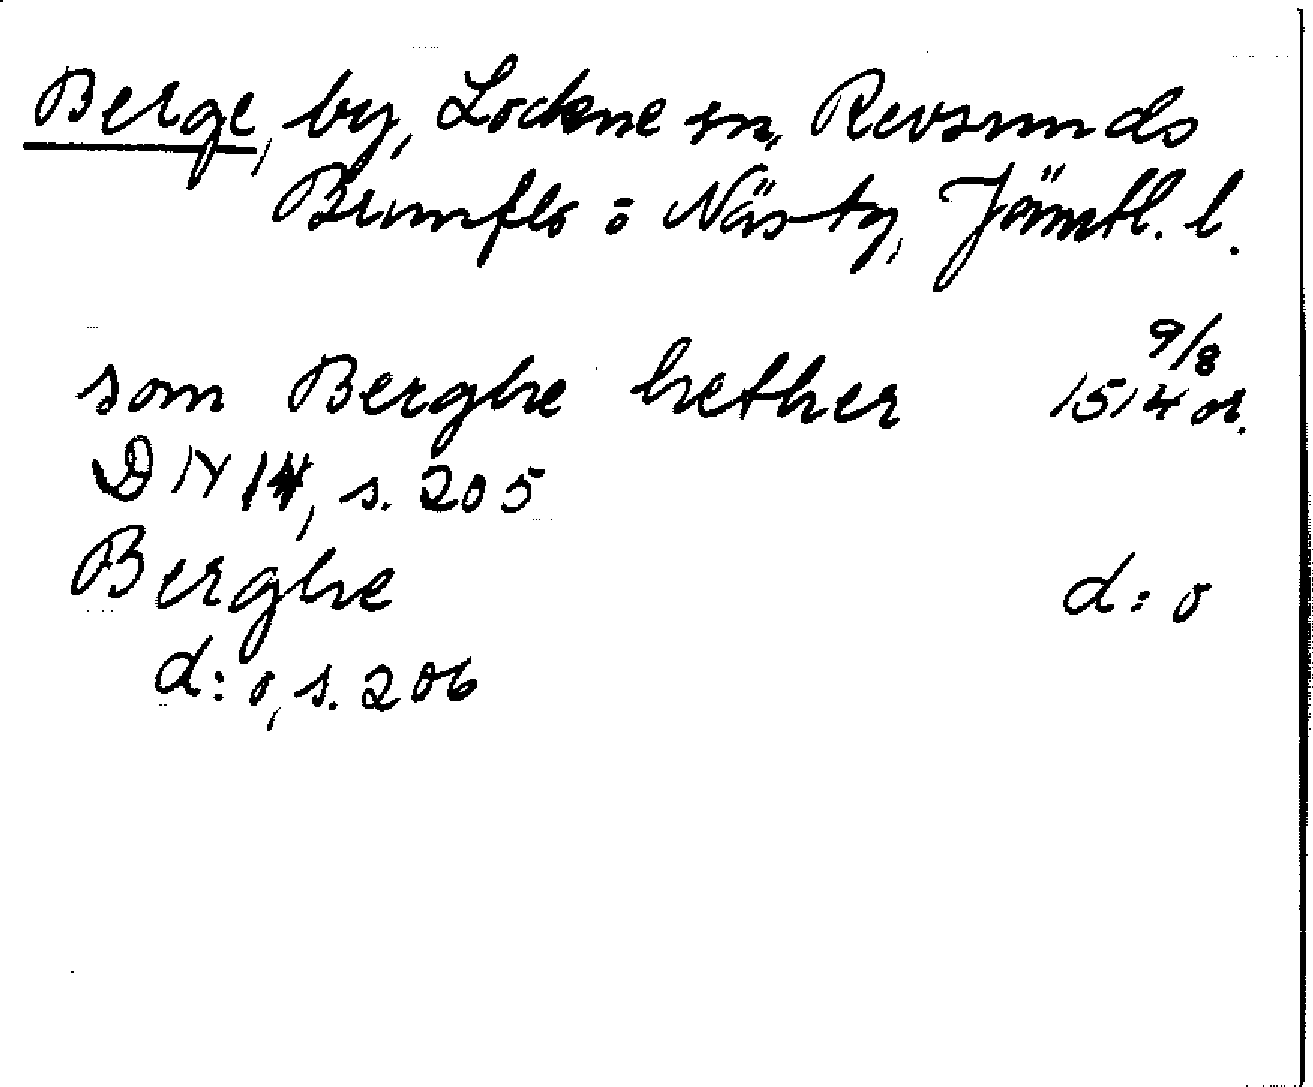 Berge, by, Lockne sn, Revsunds
Brunflo o Näs tg, Jämtl. l.
9/8
som Berghe hether 1514 or.
DN 14, s. 205
Berghe d:o
d:o, s. 206